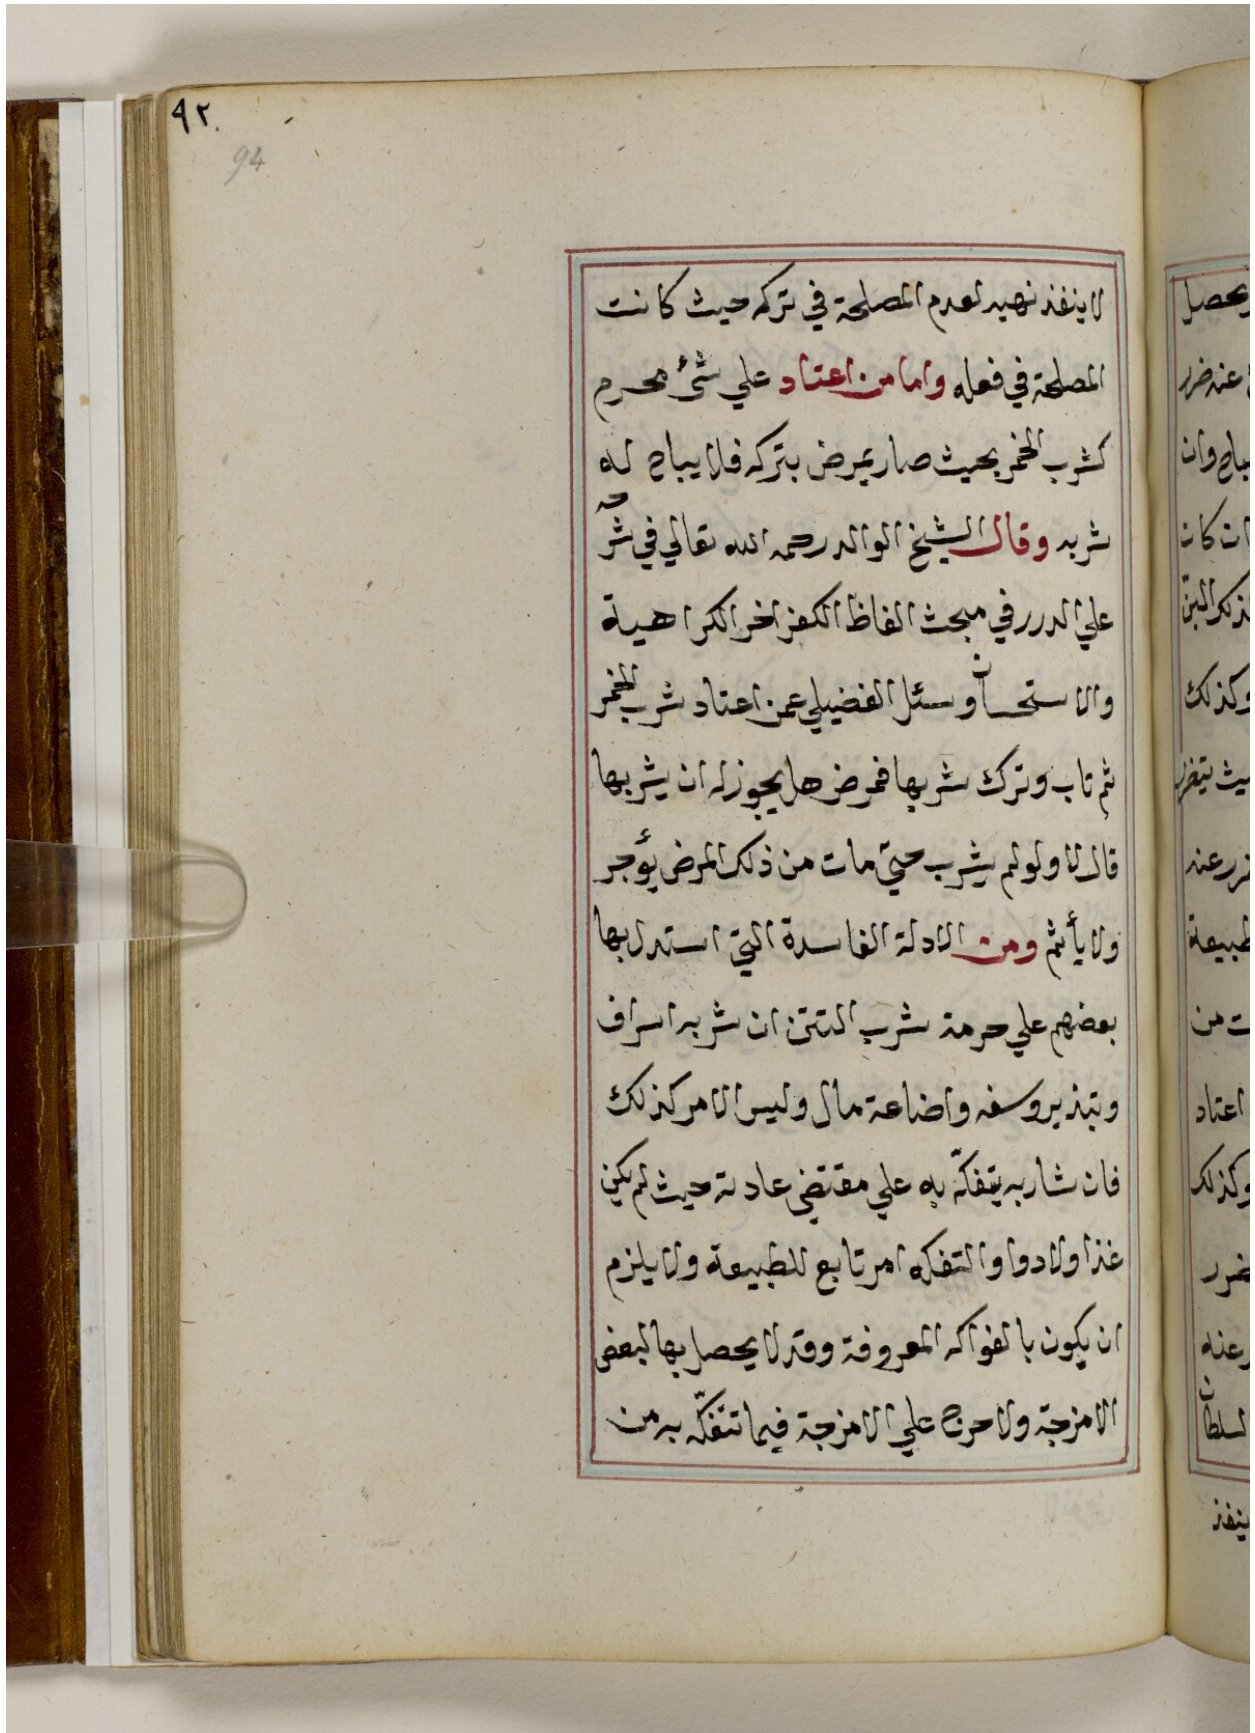 ٩٢
94
لا ينفذ نهيه لعدم المصلحة في تركه حيث كانت
المصلحة في فعله واما من اعتاد علي شئ محرم
كشرب الخمر بحيث صار يمرض بتركه فلا يباح له
شربه وقال الشيخ الوالد رحمه الله تعالي في شرحه
علي الدرر في مبحث الفاظ الكفر اخر الكراهية
والاستحسان وسئل الفضيلي عمن اعتاد شرب الخمر
ثم تاب وترك شربها فمرض هل يجوز له ان يشربها
قال لا ولو لم يشرب حتي مات من ذلك المرض يؤجر
ولا يأثم ومن الادلة الفاسدة التي استدل بها
بعضهم علي حرمة شرب التتن ان شربه اسراف
وتبذير وسفه واضاعة مال وليس الامر كذلك
فان شاربه يتفكّه به علي مقتضي عادته حيث لم يكن
غذا ولا دوا والتفكه امر تابع للطبيعة ولا يلزم
ان يكون بالفواكه المعروفة وقد لا يحصل بها لبعض
الامزجة ولا حرج علي الامزجة فيما تتفكّه به من